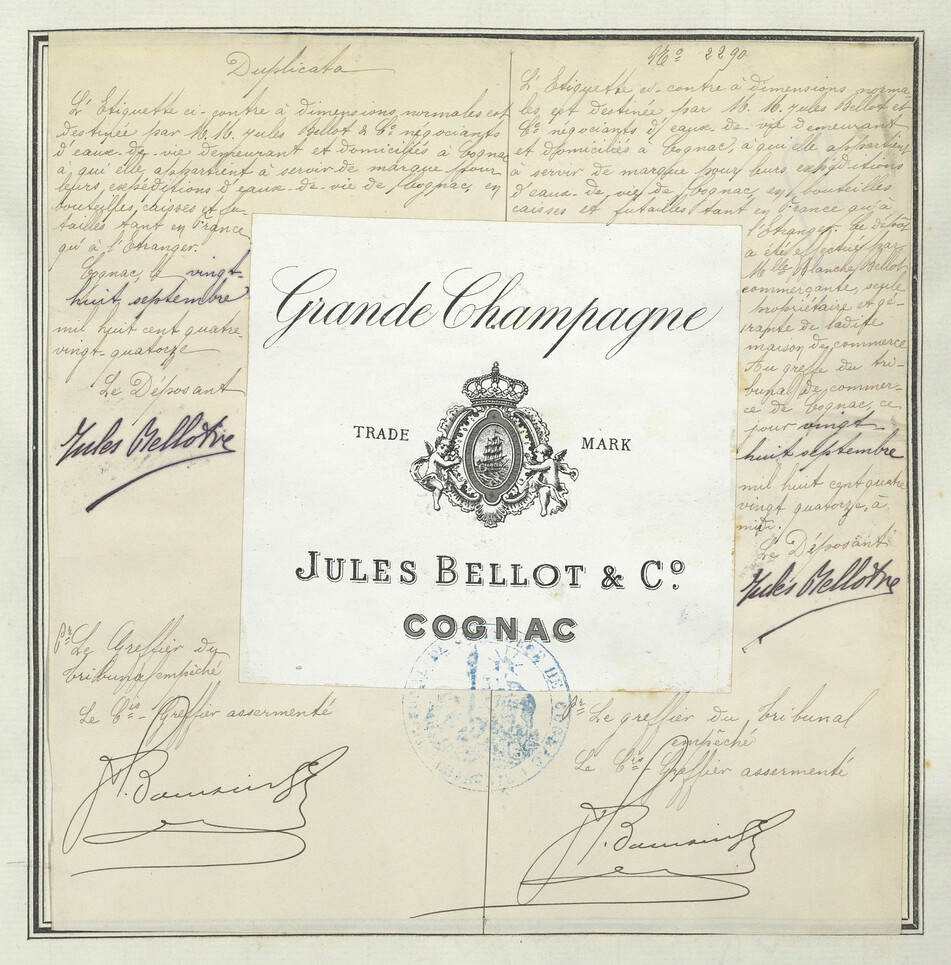 Duplicata
L'Etiquette ci-contre à dimensions normales est
destinée par M.M. Jules Bellot & Cie négociants
d'eaux-de-vie demeurant et domiciliés à Cognac
à qui elle appartient à servir de marque pour
leurs expéditions d'eaux-de-vie de Cognac, en
bouteilles, caisses et fu-
tailles tant en France
qu'à l'Etranger.
Cognac, le vingt-
huit septembre
mil huit cent quatre-
vingt-quatorze
Le Déposant
Jules Bellot
Pr Le Greffier du
tribunal empêché
Le Cis-Greffier assermenté
No 2290
L'Etiquette ci-contre à dimensions norma-
les est destinée par M.M. Jules Bellot et
Cie négociants d'eaux-de-vie demeurant
et domiciliés à Cognac, à qui elle appartient
à servir de marque pour leurs expéditions
d'eaux-de-vie de Cognac, en bouteilles
caisses et futailles tant en France qu'à
l'étranger. Ce dépôt
a été effectué par
Mlle Blanche Bellot,
commerçante, seule
propriétaire et gé-
rante de ladite
maison de commerce
Au greffe du tri-
bunal de commer-
ce de Cognac, ce
jour vingt
huit septembre
mil huit cent quatre
vingt quatorze, à
midi.
Le Déposant
Jules Bellot
Pr Le greffier du tribunal
empêché
Le Cis-Greffier assermenté
Grande Champagne
TRADE MARK
JULES BELLOT & Co
COGNAC